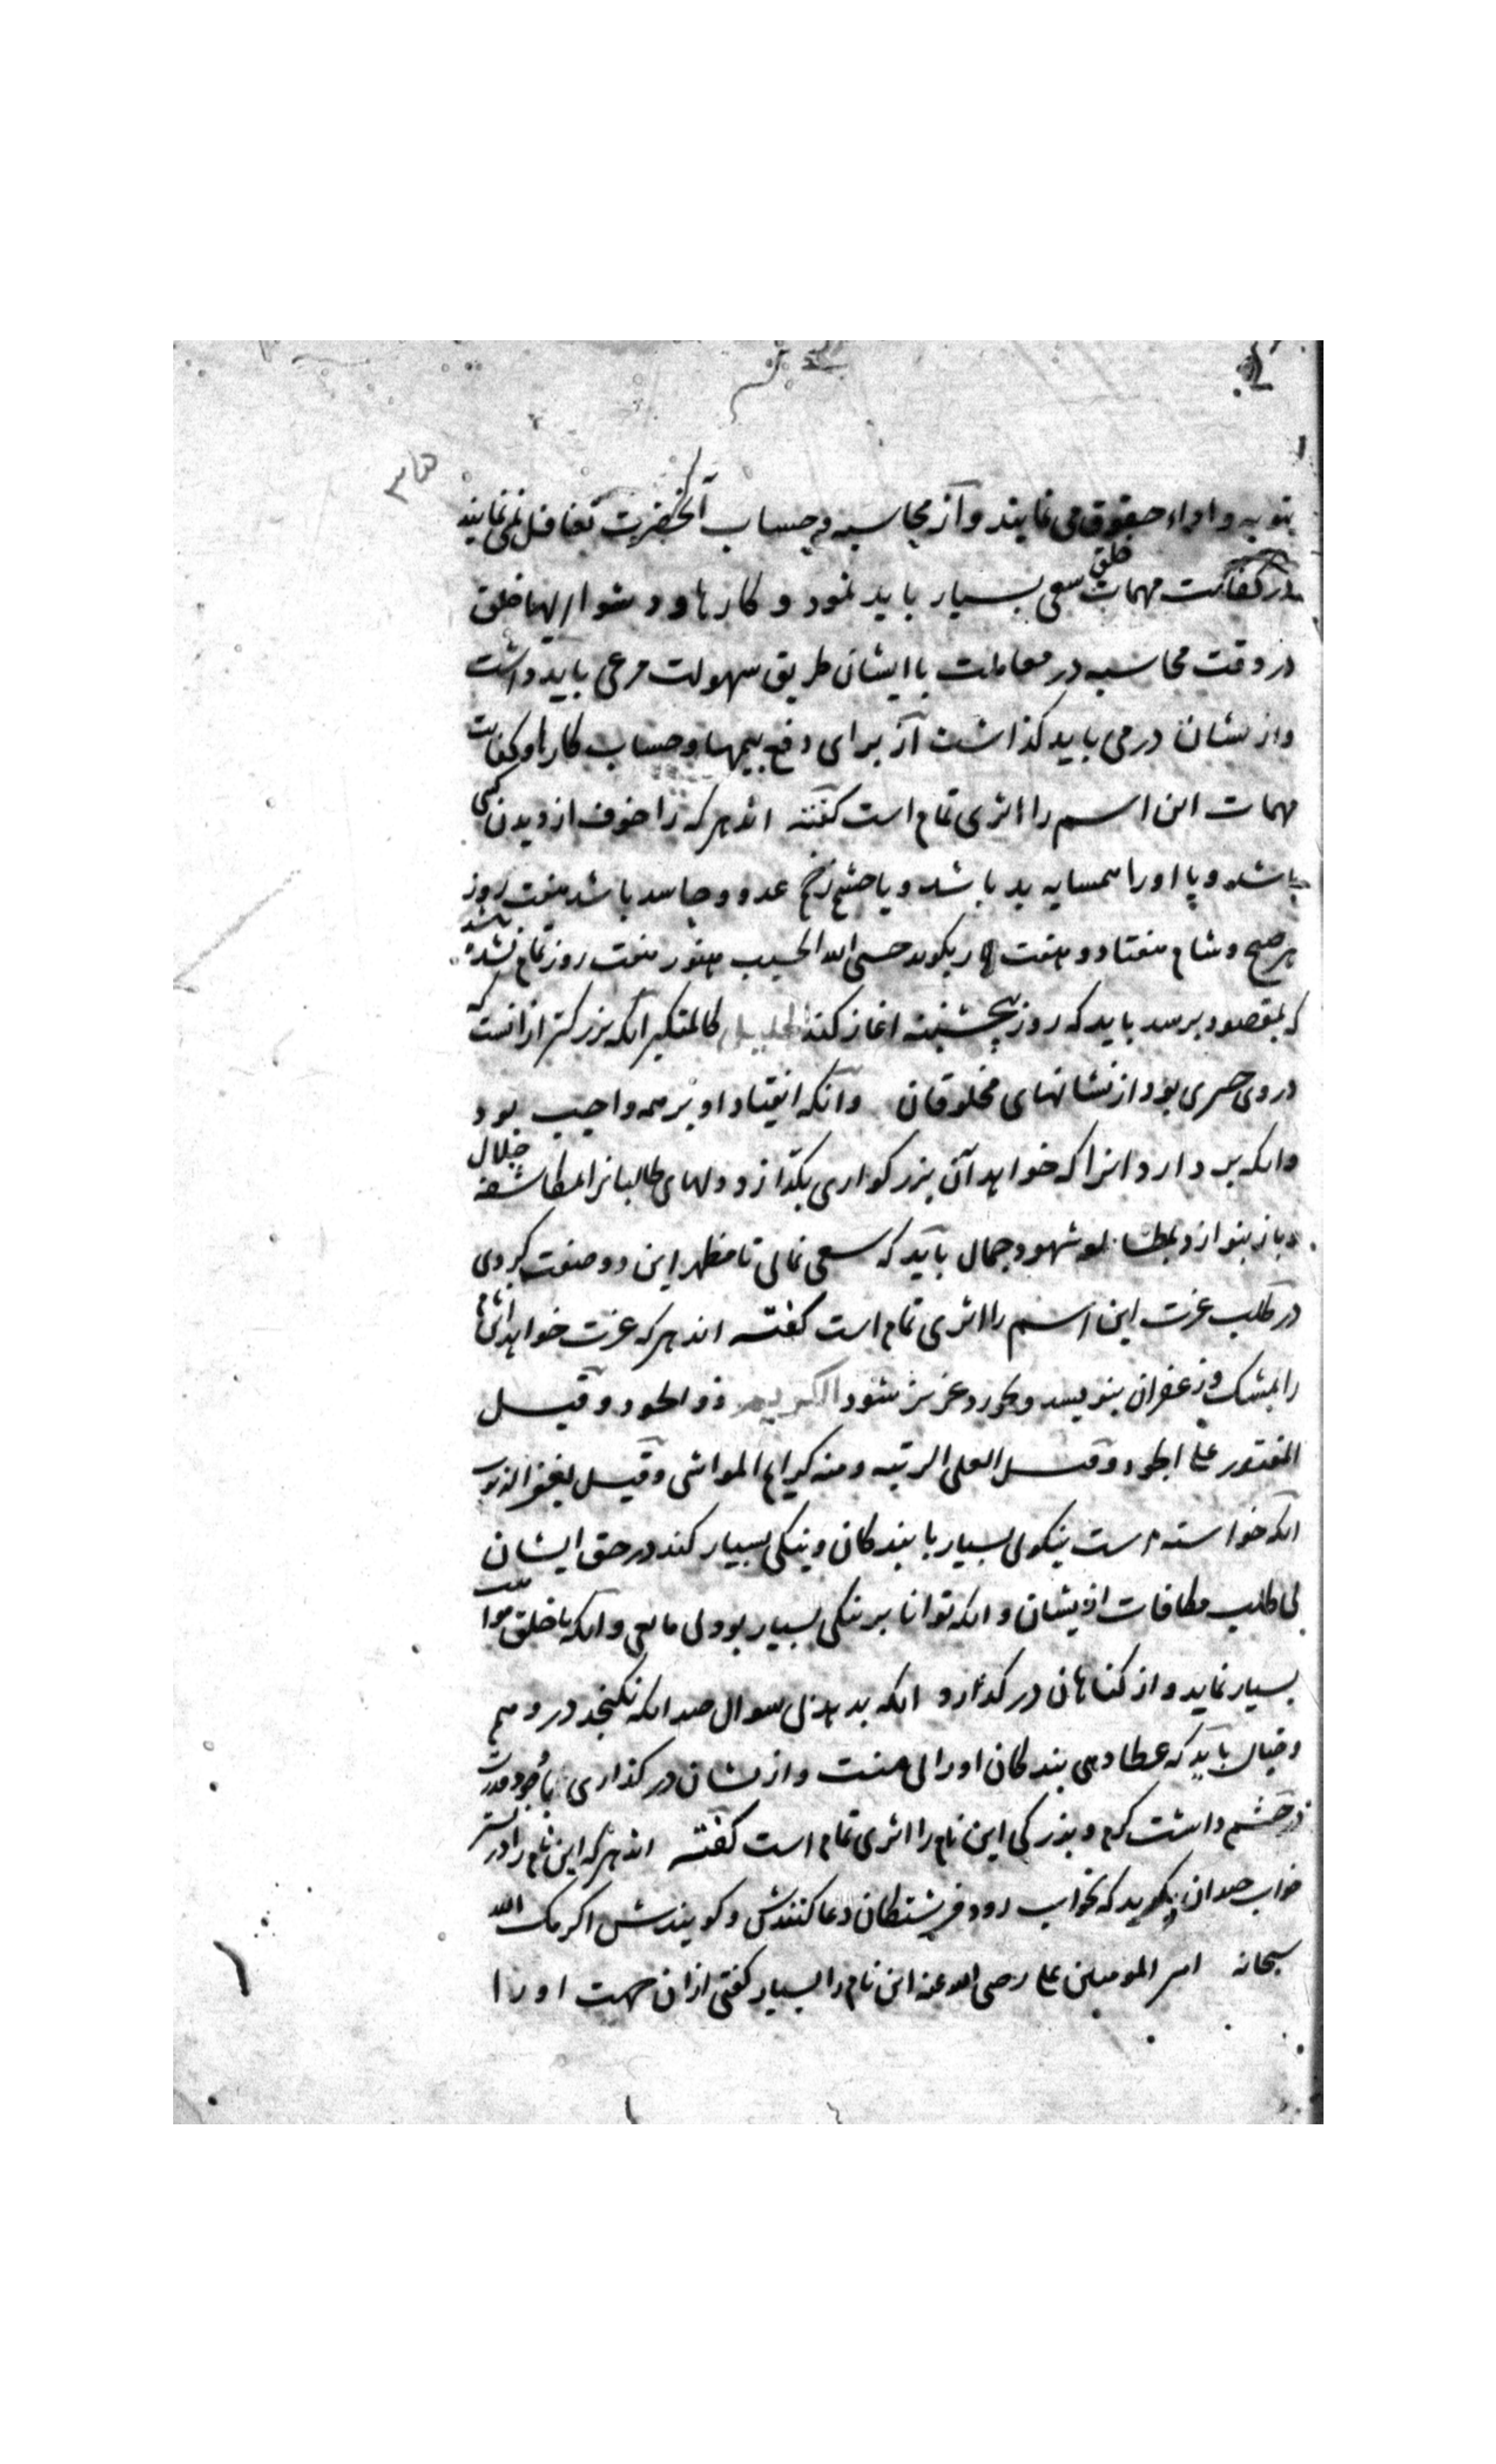 بتوبه و اداء حقوق می نمایند و از محاسبه و حساب آنحضرت تغافل نمی نمایند
در کفایت مهمات خلق سعی بسیار باید نمود و کارها و دشواریهاء خلق
در وقت محاسبه در معاملت با ایشان طریق سهولت مرعی باید داشت
و از نشان در می باید کذاشت از برای دفع بیمها و حساب کارها و کفایت
مهمات این اسم را اثری تمام است کفته اند هر که را خوف از دیدن کسی
باشد و یا او را همسایه بد باشد و یا چشم زخم عدو و حاسد باشد هفت روز
هر صبح و شام هفتاد و هفت بار بکوید حسبی الله الحسیب هنوز هفت روز تمام نشده باشد
که بمقصود برسد باید که روز پنجشنبه اغاز کند الجلیل کالمتکبر انکه بزرکتر از انست که
در وی چیزی بود از نشانهای مخلوقان وانکه انقیاد او بر همه واجب بود
وانکه بر دارد انرا که خواهد آن بزرکواری بکدازد دلهای طالبانرا بمکاشفه جلال
و باز بنوازد بمطالعه شهود جمال باید که سعی نمائی تا مظهر این دو صفت کردی
در طلب عزت این اسم را اثری تمام است کفته اند هر که عزت خواهد این نام
را بمشک و زعفران بنویسد و بخورد عزیز شود الکریم ذو الجود و قیل
المقتدر علی الجود و قیل العلی الرتبه و منه کرایم المواشی و قیل یغفر الذنوب
انکه خواسته است نیکوئی بسیار با بندکان و نیکی بسیار کند در حق ایشان
بی طلب مکافات از یشان و انکه توانا بر نیکی بسیار بود بی مانعی و انکه با خلق
بسیار نماید و از کناهان در کذارد انکه بدهد بی سوال چندانکه نکنجد در وهم
و خیال باید که عطا دهی بندکان او را بی منت و از نشان در کذاری با وجود قدرت
در چشم داشت کرم و بزرکی این نام را اثری تمام است کفته اند هر که این نام را در بستر
خواب چندان بکوید که بخواب رود فرشتکان دعا کنندش و کویندش اکرمک الله
سبحانه امیر المومنین علی رضی الله عنه این نام را بسیار کفتی از ان جهت او را